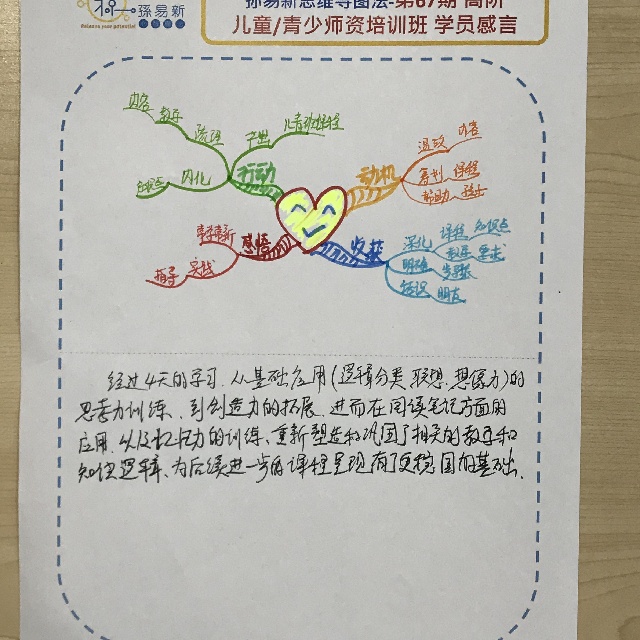 孫易新
孙易新思维导图法-第67期 高阶
儿童/青少师资培训班 学员感言
内容
教学
流程
产出
儿童班课程
行动
内化
动机
温故
内容
筹划 课程
帮助 孩子
感悟
实践
指导
收获
深化
课程 知识点
教学 要求
明确 发散
结识 朋友
经过4天的学习,从基础应用(逻辑分类 联想 想像力)的
思考力训练、到创造力的拓展、进而在阅读笔记方面的
应用,以及记忆力的训练、重新塑造和巩固了相关的教学和
知识逻辑、为后续进一步的课程呈现有了更稳固的基础.